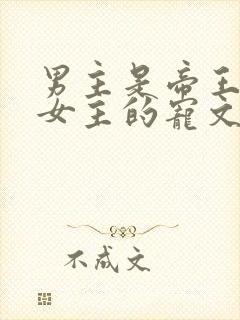 男主是帝王
女主的宠文
不成文